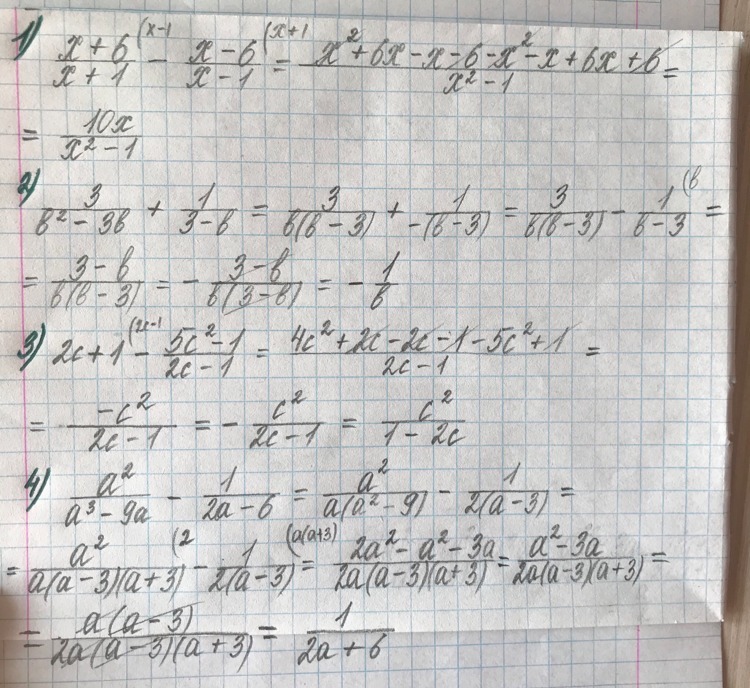 1) (x+6)/(x+1) (x-1 - (x-6)/(x-1) (x+1 = (x²+6x-x-6-x²-x+6x+6)/(x²-1) =
= 10x/(x²-1)
2) 3/(в²-3в) + 1/(3-в) = 3/(в(в-3)) + 1/(-(в-3)) = 3/(в(в-3)) - 1/(в-3) (в =
= (3-в)/(в(в-3)) = - (3-в)/(в(3-в)) = - 1/в
3) 2c+1 (2c-1 - (5c²-1)/(2c-1) = (4c²+2c-2c-1-5c²+1)/(2c-1) =
= -c²/(2c-1) = - c²/(2c-1) = c²/(1-2c)
4) a²/(a³-9a) - 1/(2a-6) = a²/(a(a²-9)) - 1/(2(a-3)) =
= a²/(a(a-3)(a+3)) (2 - 1/(2(a-3)) (a(a+3) = (2a²-a²-3a)/(2a(a-3)(a+3)) = (a²-3a)/(2a(a-3)(a+3)) =
= a(a-3)/(2a(a-3)(a+3)) = 1/(2a+6)